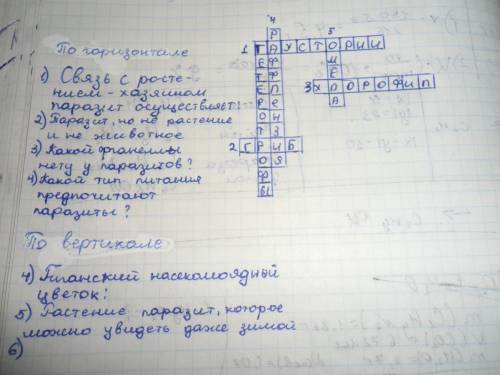 По горизонтале
1) Связь с росте-
нием-хозяином
паразит осуществляет?
2) Паразит, но не растение
и не животное
3) Какой органеллы
нету у паразитов?
4) Какой тип питания
предпочитают
паразиты?
По вертикале
4) Гиганский насекомоядный
цветок?
5) Растение паразит, которое
можно увидеть даже зимой
6)
4
5
1 ГАУСТОРИИ
3 ХЛОРОФИЛ
2 ГРИБ
ОМЕЛА